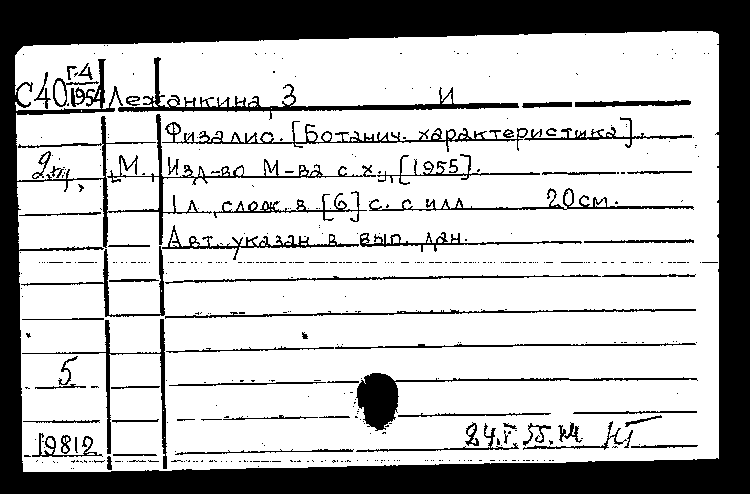 С40 Г-4/1954 Лежанкина, З И
Физалис. [Ботанич. характеристика].
2 экз., М., Изд-во М-ва с. х., [1955].
1 л., слож. в [6] с. с илл. 20 см.
Авт. указан в вып. дан.
5
19812 24.V.55. М